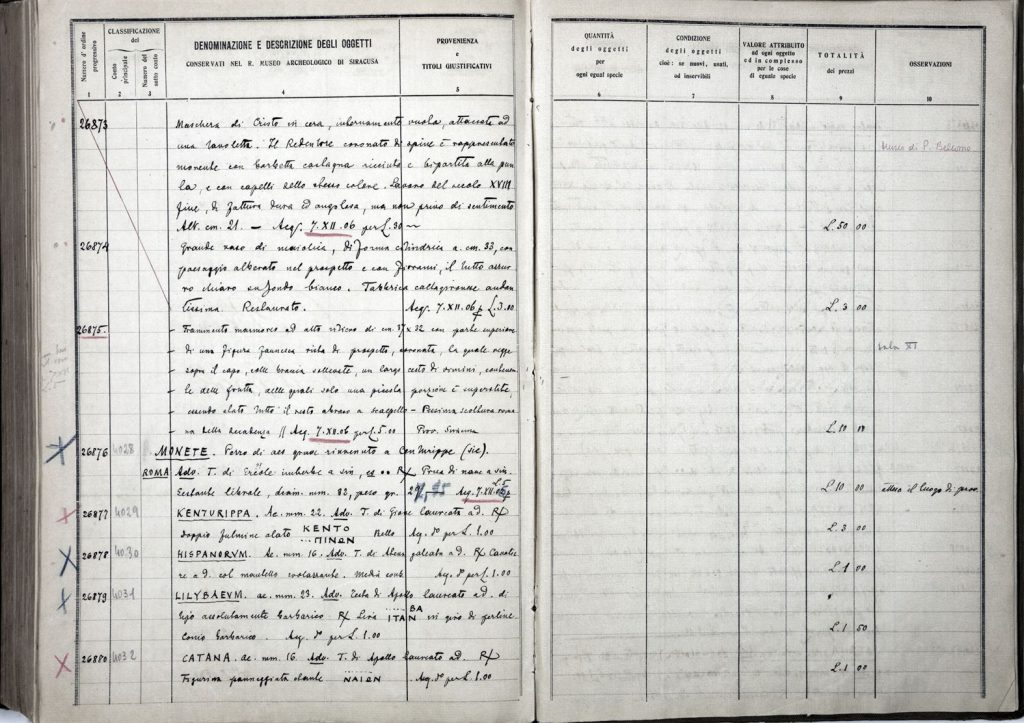 Numero d'ordine progressivo
CLASSIFICAZIONE
del
Conto principale
Numero del sotto conto
DENOMINAZIONE E DESCRIZIONE DEGLI OGGETTI
CONSERVATI NEL R. MUSEO ARCHEOLOGICO DI SIRACUSA
PROVENIENZA
e
TITOLI GIUSTIFICATIVI
1 2 3 4 5
26873 Maschera di Cristo in cera, internamente vuota, attaccata ad
una tavoletta. Il Redentore coronato di spine è rappresentato
morente con barbetta castagna ricciuta e bipartita alla pun
ta, e con capelli dello stesso colore. Lavoro del secolo XVIII
fine, di fattura dura ed angolosa, ma non privo di sentimento
Alt. cm. 21. — Acq. 7.XII.06 per L. 30
26874 Grande vaso di maiolica, di forma cilindrica a. cm. 33, con
paesaggio alberato nel prospetto e con fiorami, il tutto azzur
ro chiaro su fondo bianco. Fabbrica caltagironese
Restaurato. Acq. 7.XII.06 p. L. 3.00
26875 Frammento marmoreo ad alto rilievo di cm. 37 x 32 con parte superiore
di una figura vista di prospetto, coronata, la quale regge
sopra il capo, colle braccia sollevate, un largo cesto di vimini, contenen
te delle frutta, delle quali solo una piccola porzione è superstite,
essendo stato tutto il resto abraso a scalpello - Pessima scoltura roma
na della decadenza // Acq. 7.XII.06 per L. 5.00 Prov. Siracusa
26876 4028 MONETE. Pezzo di aes grave rinvenuto a Centurippe (sic).
ROMA Adv. T. di Ercole imberbe a sin, Rx Prua di nave a sin.
Sestante librale, diam. mm. 82, peso gr. Acq. 7.XII.06 p. L. 5
26877 4029 KENTURIPPA. Ae. mm. 22. Adv. T. di Giove laureata a d. Rx
Doppio fulmine alato KENTO
ΠΙΝΩΝ Bello Acq. Do per L. 1.00
26878 4030 HISPANORVM. Ae. mm. 16. Adv. T. di Atena galeata a d. Rx Cavalie
re a d. col mantello svolazzante. Acq. Do per L. 1.00
26879 4031 LILYBAEVM. ae. mm. 23. Adv. Testa di Apollo laureato a d. di
tipo assolutamente barbarico Rx Lira ITAN BA in giro di perline
Conio barbarico. Acq. Do per L. 1.00
26880 4032 CATANA. ae. mm. 16. Adv. T. di Apollo laureato a d. Rx
Figurina panneggiata stante ΝΑΙΩΝ Acq. Do per L. 1.00
QUANTITÀ
degli oggetti
per
ogni egual specie
CONDIZIONE
degli oggetti
cioè: se nuovi, usati,
od inservibili
VALORE ATTRIBUITO
ad ogni oggetto
ed in complesso
per le cose
di eguale specie
TOTALITÀ
dei prezzi
OSSERVAZIONI
6 7 8 9 10
Museo di P. Bellomo
L. 50 00
L. 3 00
sala XI
L. 10 00
L. 10 00 il luogo di prov.
L. 3 00
L. 1 00
L. 1 50
L. 1 00